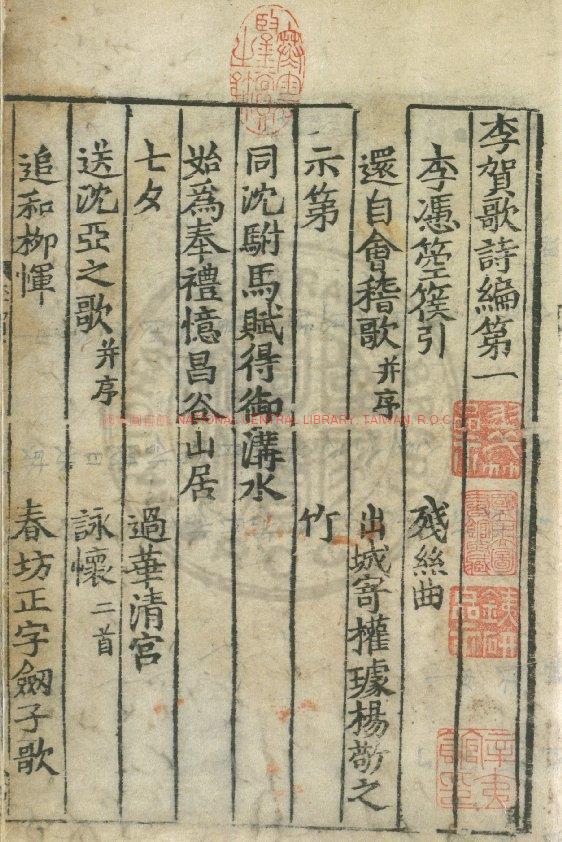 李賀歌詩編第一
李憑箜篌引 殘絲曲
還自會稽歌 并序 出城寄權璩楊敬之
示弟 竹
同沈駙馬賦得御溝水
始為奉禮憶昌谷山居
七夕 過華清宮
送沈亞之歌 并序 詠懷 二首
追和柳惲 春坊正字劒子歌
國家圖書館 NATIONAL CENTRAL LIBRARY, TAIWAN, R.O.C.